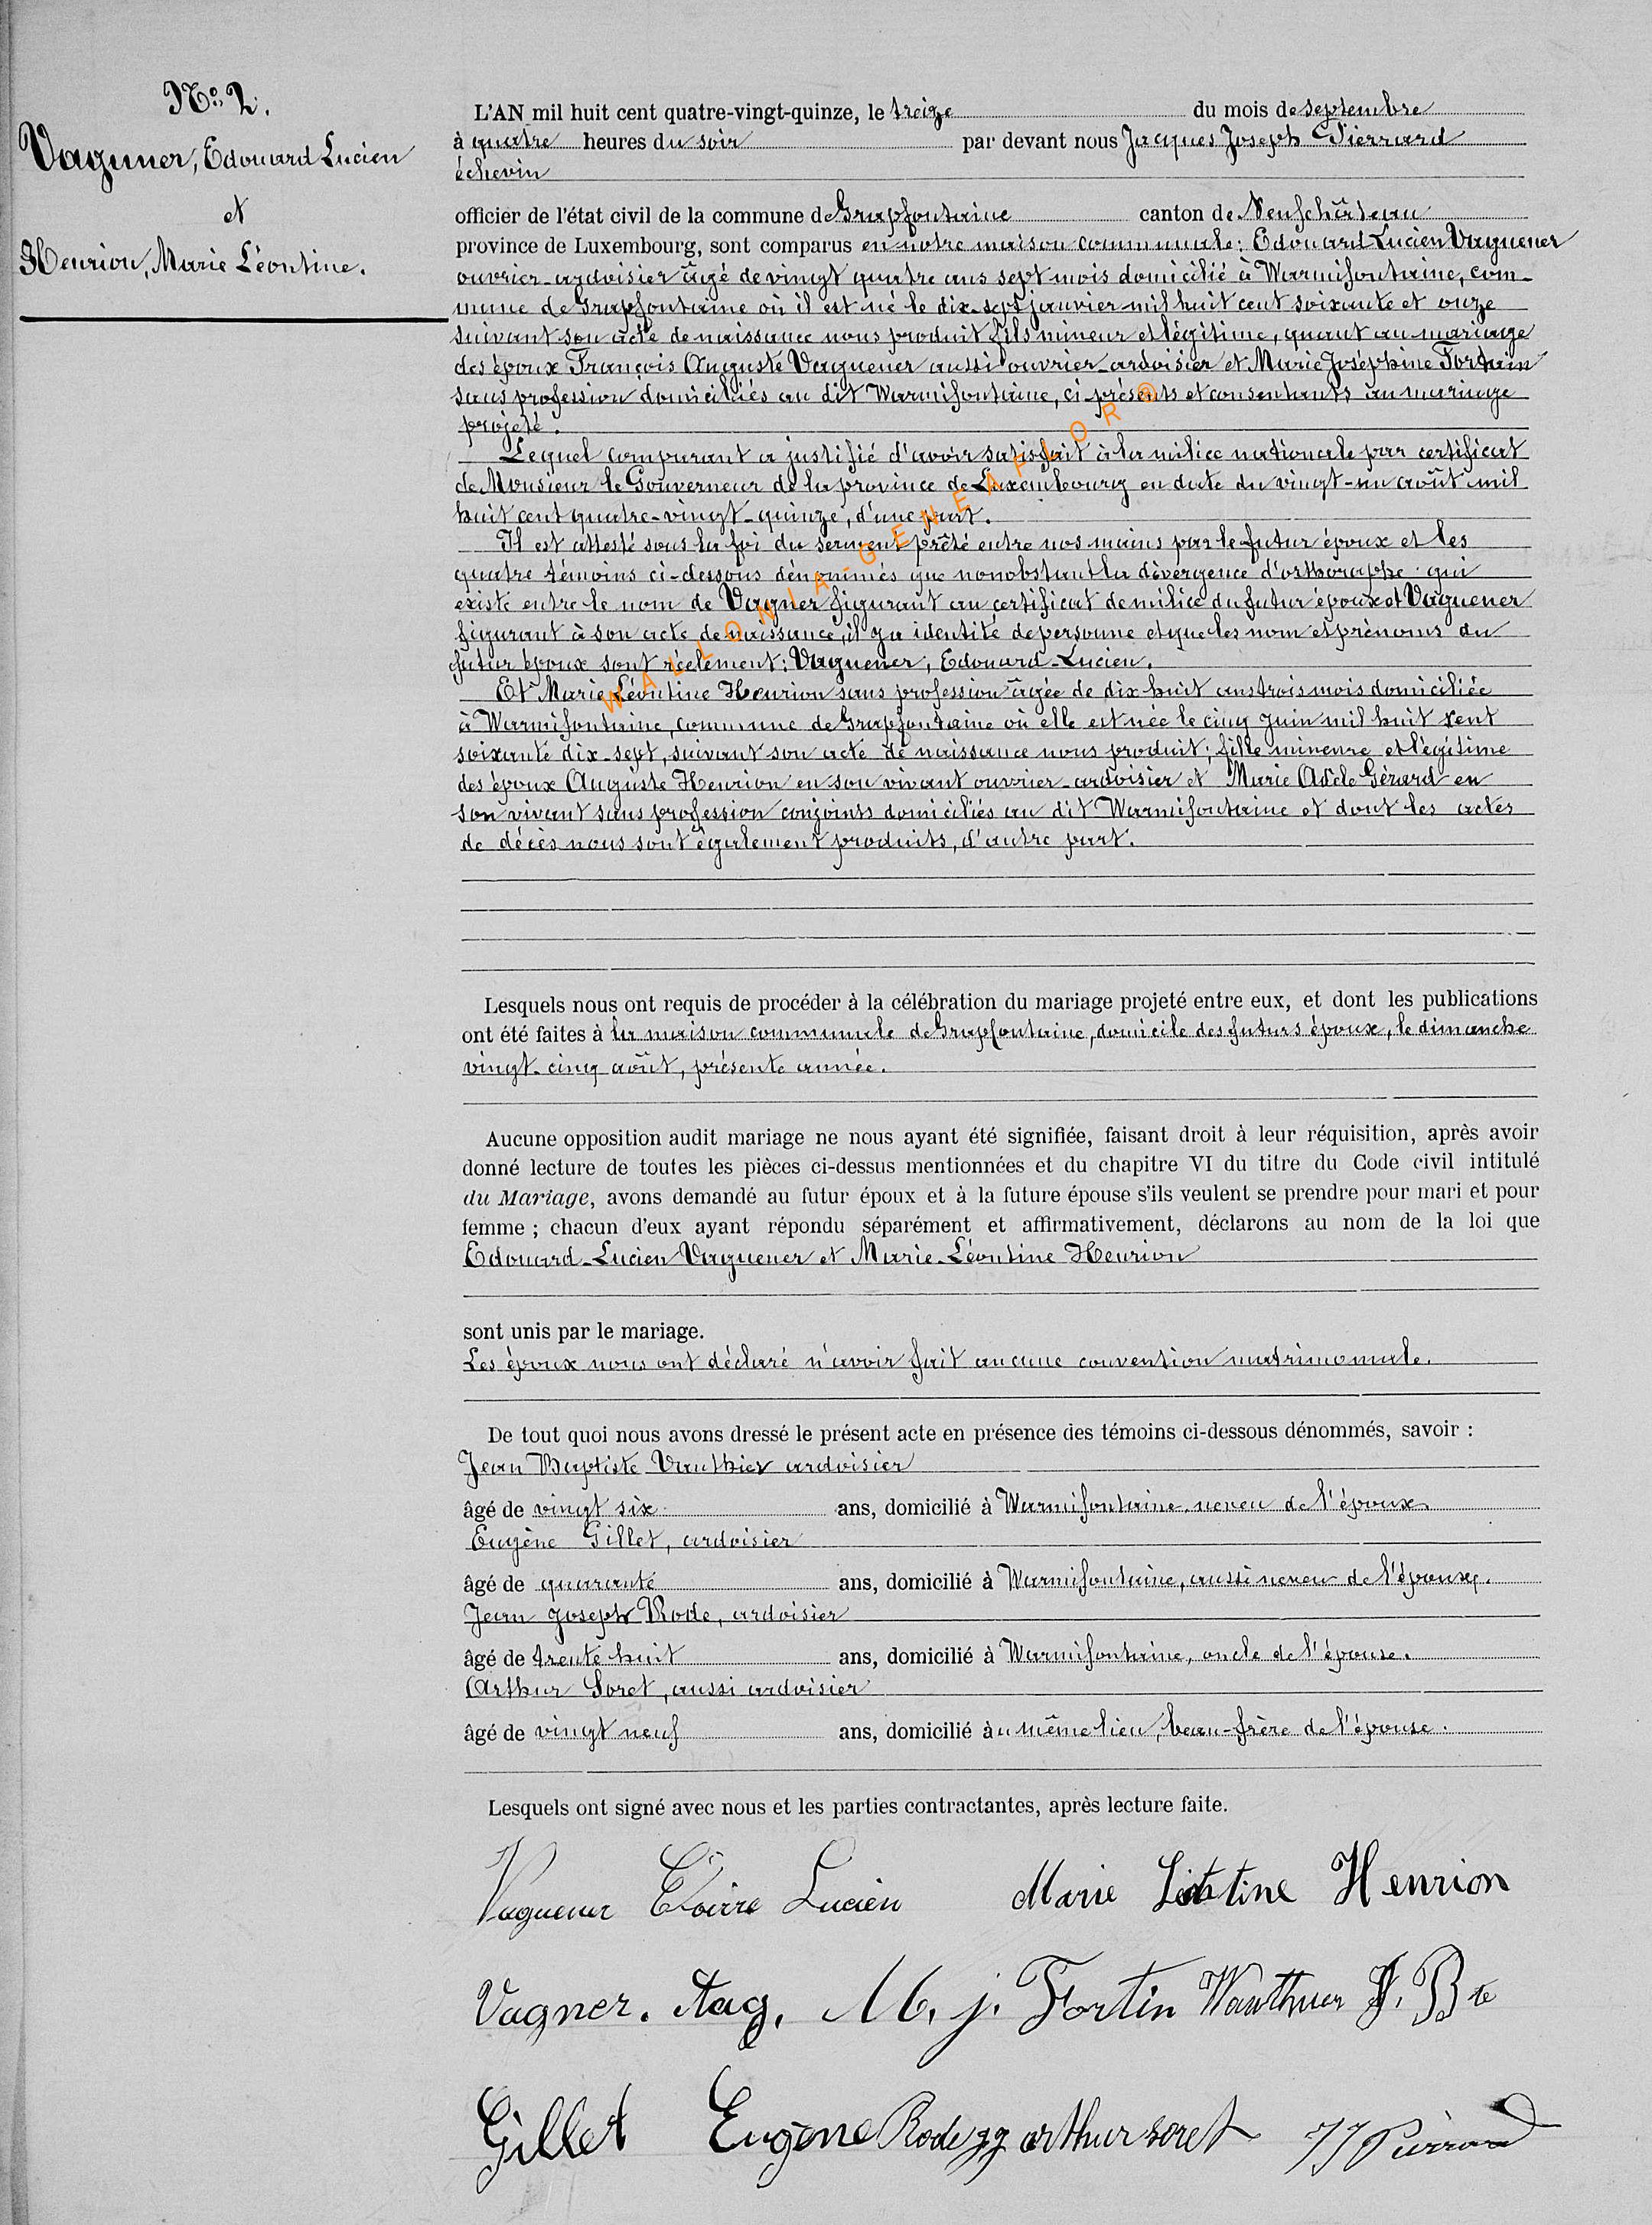 No 2.
Vaguener, Edouard Lucien
et
Henrion, Marie Léontine.
L'AN mil huit cent quatre-vingt-quinze, le treize du mois de septembre
à quatre heures du soir par devant nous Jacques Joseph Pierrard
échevin
officier de l'état civil de la commune de Grapfontaine canton de Neufchâteau
province de Luxembourg, sont comparus en notre maison communale: Edouard Lucien Vaguener
ouvrier-ardoisier âgé de vingt quatre ans sept mois domicilié à Warmifontaine, com-
mune de Grapfontaine où il est né le dix-sept janvier mil huit cent soixante et onze
suivant son acte de naissance nous produit fils mineur et légitime, quant au mariage
des époux François Auguste Vaguener aussi ouvrier-ardoisier et Marie Joséphine Fortain
sans profession domiciliés au dit Warmifontaine, ci présents et consentants au mariage
projeté.
Lequel comparant a justifié d'avoir satisfait à la milice nationale par certificat
de Monsieur le Gouverneur de la province de Luxembourg en date du vingt-un août mil
huit cent quatre-vingt-quinze, d'une part.
Il est attesté sous la foi du serment prêté entre nos mains par le futur époux et les
quatre témoins ci-dessous dénommés que nonobstant la divergence d'orthoraphe qui
existe entre le nom de Vagner figurant au certificat de milice du futur époux et Vaguener
figurant à son acte de naissance, il y a identité de personne et que les nom et prénoms du
futur époux sont réelement: Vaguener, Edouard-Lucien.
Et Marie Léontine Henrion sans profession âgée de dix huit ans trois mois domiciliée
à Warmifontaine, commune de Grapfontaine où elle est née le cinq juin mil huit cent
soixante dix-sept, suivant son acte de naissance nous produit; fille mineure et légitime
des époux Auguste Henrion en son vivant ouvrier-ardoisier et Marie Adèle Gérard en
son vivant sans profession conjoints domiciliés au dit Warmifontaine et dont les actes
de décès nous sont également produits, d'autre part.
WALLONIA-GENEAFLOR ®
Lesquels nous ont requis de procéder à la célébration du mariage projeté entre eux, et dont les publications
ont été faites à la maison communale de Grapfontaine, domicile des futurs époux, le dimanche
vingt-cinq août, présente année.
Aucune opposition audit mariage ne nous ayant été signifiée, faisant droit à leur réquisition, après avoir
donné lecture de toutes les pièces ci-dessus mentionnées et du chapitre VI du titre du Code civil intitulé
du Mariage, avons demandé au futur époux et à la future épouse s'ils veulent se prendre pour mari et pour
femme ; chacun d'eux ayant répondu séparément et affirmativement, déclarons au nom de la loi que
Edouard-Lucien Vaguener et Marie-Léontine Henrion
sont unis par le mariage.
Les époux nous ont déclaré n'avoir fait aucune convention matrimoniale.
De tout quoi nous avons dressé le présent acte en présence des témoins ci-dessous dénommés, savoir :
Jean Baptiste Vauthier ardoisier
âgé de vingt six ans, domicilié à Warmifontaine, neveu de l'époux
Eugène Gillet, ardoisier
âgé de quarante ans, domicilié à Warmifontaine, aussi neveu de l'époux.
Jean Joseph Rode, ardoisier
âgé de trente huit ans, domicilié à Warmifontaine, oncle de l'épouse.
Arthur Soret, aussi ardoisier
âgé de vingt neuf ans, domicilié au même lieu, beau-frère de l'épouse.
Lesquels ont signé avec nous et les parties contractantes, après lecture faite.
Vaguener Lucien Marie Henrion
Vagner. Aug. M. j. Fortin Wauthier J. Bte
Gillet Eugène Rode JJ arthur soret JJ Pierrard